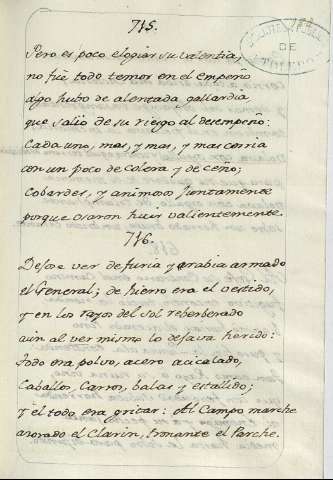 715.
DE
Pero es poco elogiar su valentia,
no fuè todo temor en el empeño
algo hubo de alentada gallardia
que salio de su riesgo al desempeño:
Cada uno, mas, y mas, y mas corria
con un poco de colera y de ceño;
Cobardes, y animosos juntamente
porque osaron huir valientemente.
716.
Dejose ver de furia y rabia armado
el General; de hierro era el vestido,
y en los rayos del sol reberberado
aun al ver mismo lo dejava herido:
todo era polvo, acero acicalado,
Caballos, Carros, balas y estallido;
y el todo era gritar: Al Campo marche
azorado el Clarin, tronante el Parche.